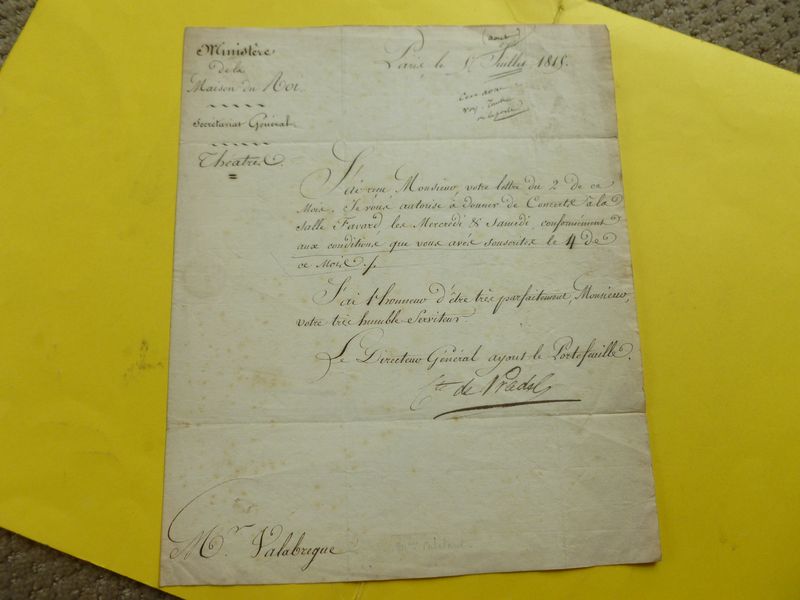 Ministère
de la
Maison du Roi.
Secrétariat Général
Théatres.
Paris le 5 Juillet 1815.
(aout
J'ai reçu Monsieur, votre lettre du 2 de ce
Mois. Je vous autorise à donner de Concerts à la
Salle Favard, les Mercredi & Samedi, conformément
aux conditions que vous avés souscrites le 4 de
ce Mois./.
J'ai l'honneur d'être très parfaitement, Monsieur,
votre très humble Serviteur.
Le Directeur Général ayant le Portefeuille.
Cte de Pradel
Mr. Valabregue